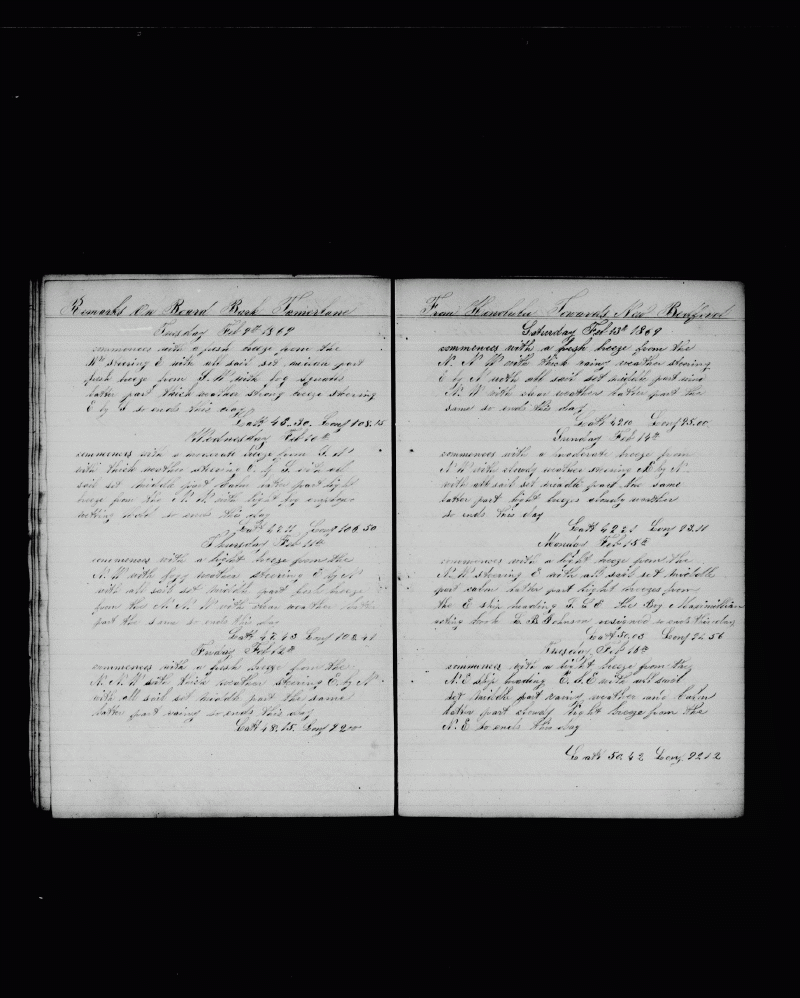 Remarks On Board Bark Tamerlane
Tuesday Feb 9th 1869
commences with a fresh breeze from the
steering E with all sail set middle part
fresh breeze from S. W with fog squales
latter part thick weather strong breeze steering
E by S so ends this day
Latt 48.30. Long 108.15
Wednesday Feb 10th
commences with a moderate breeze from S. W
with thick weather steering E. by S with all
sail set middle part calm latter part light
breeze from the N. W with light fog
nothing so ends this day
Latt 42 11 Long 106.50
Thursday Feb 11th
commences with a light breeze from the
N. W with foggy weather steering E. by N
with all sail set middle part fresh breeze
from the N. N. W with clear weather latter
part the same so ends this day
Latt 47.43 Long 102.41
Friday Feb 12th
commences with a fresh breeze from the
N. N. W with thick weather steering E. by N
with all sail set middle part the same
latter part rainy so ends this day
Latt 48.15. Long
From Honolulu Towards New Bedford
Saturday Feb 13th 1869
commences with a fresh breeze from the
N. N W with thick rainy weather steering
E by N with all sail set middle part wind
N. W with clear weather latter part the
same so ends this day
Latt Long 98.00.
Sunday Feb 14th
commences with a moderate breeze from
N W with cloudy weather steering by N
with all sail set middle part the same
latter part light breezes cloudy weather
so ends this day
Latt 42 21 Long 93.11
Monday Feb 15th
commences with a light breeze from the
N. W steering E with all sail set middle
part calm latter part light breezes from
the E ship heading S. S. E the Boy Maximillian
D. B. Johnson so ends this day
Latt 50.03 Long 92.56
Tuesday Feb 16th
commences with a light breeze from the
N. E ship heading E. S. E with all sail
set middle part rainy weather and calm
latter part cloudy light breeze from the
N. E so ends this day
Latt 50.42 Long. 92 12